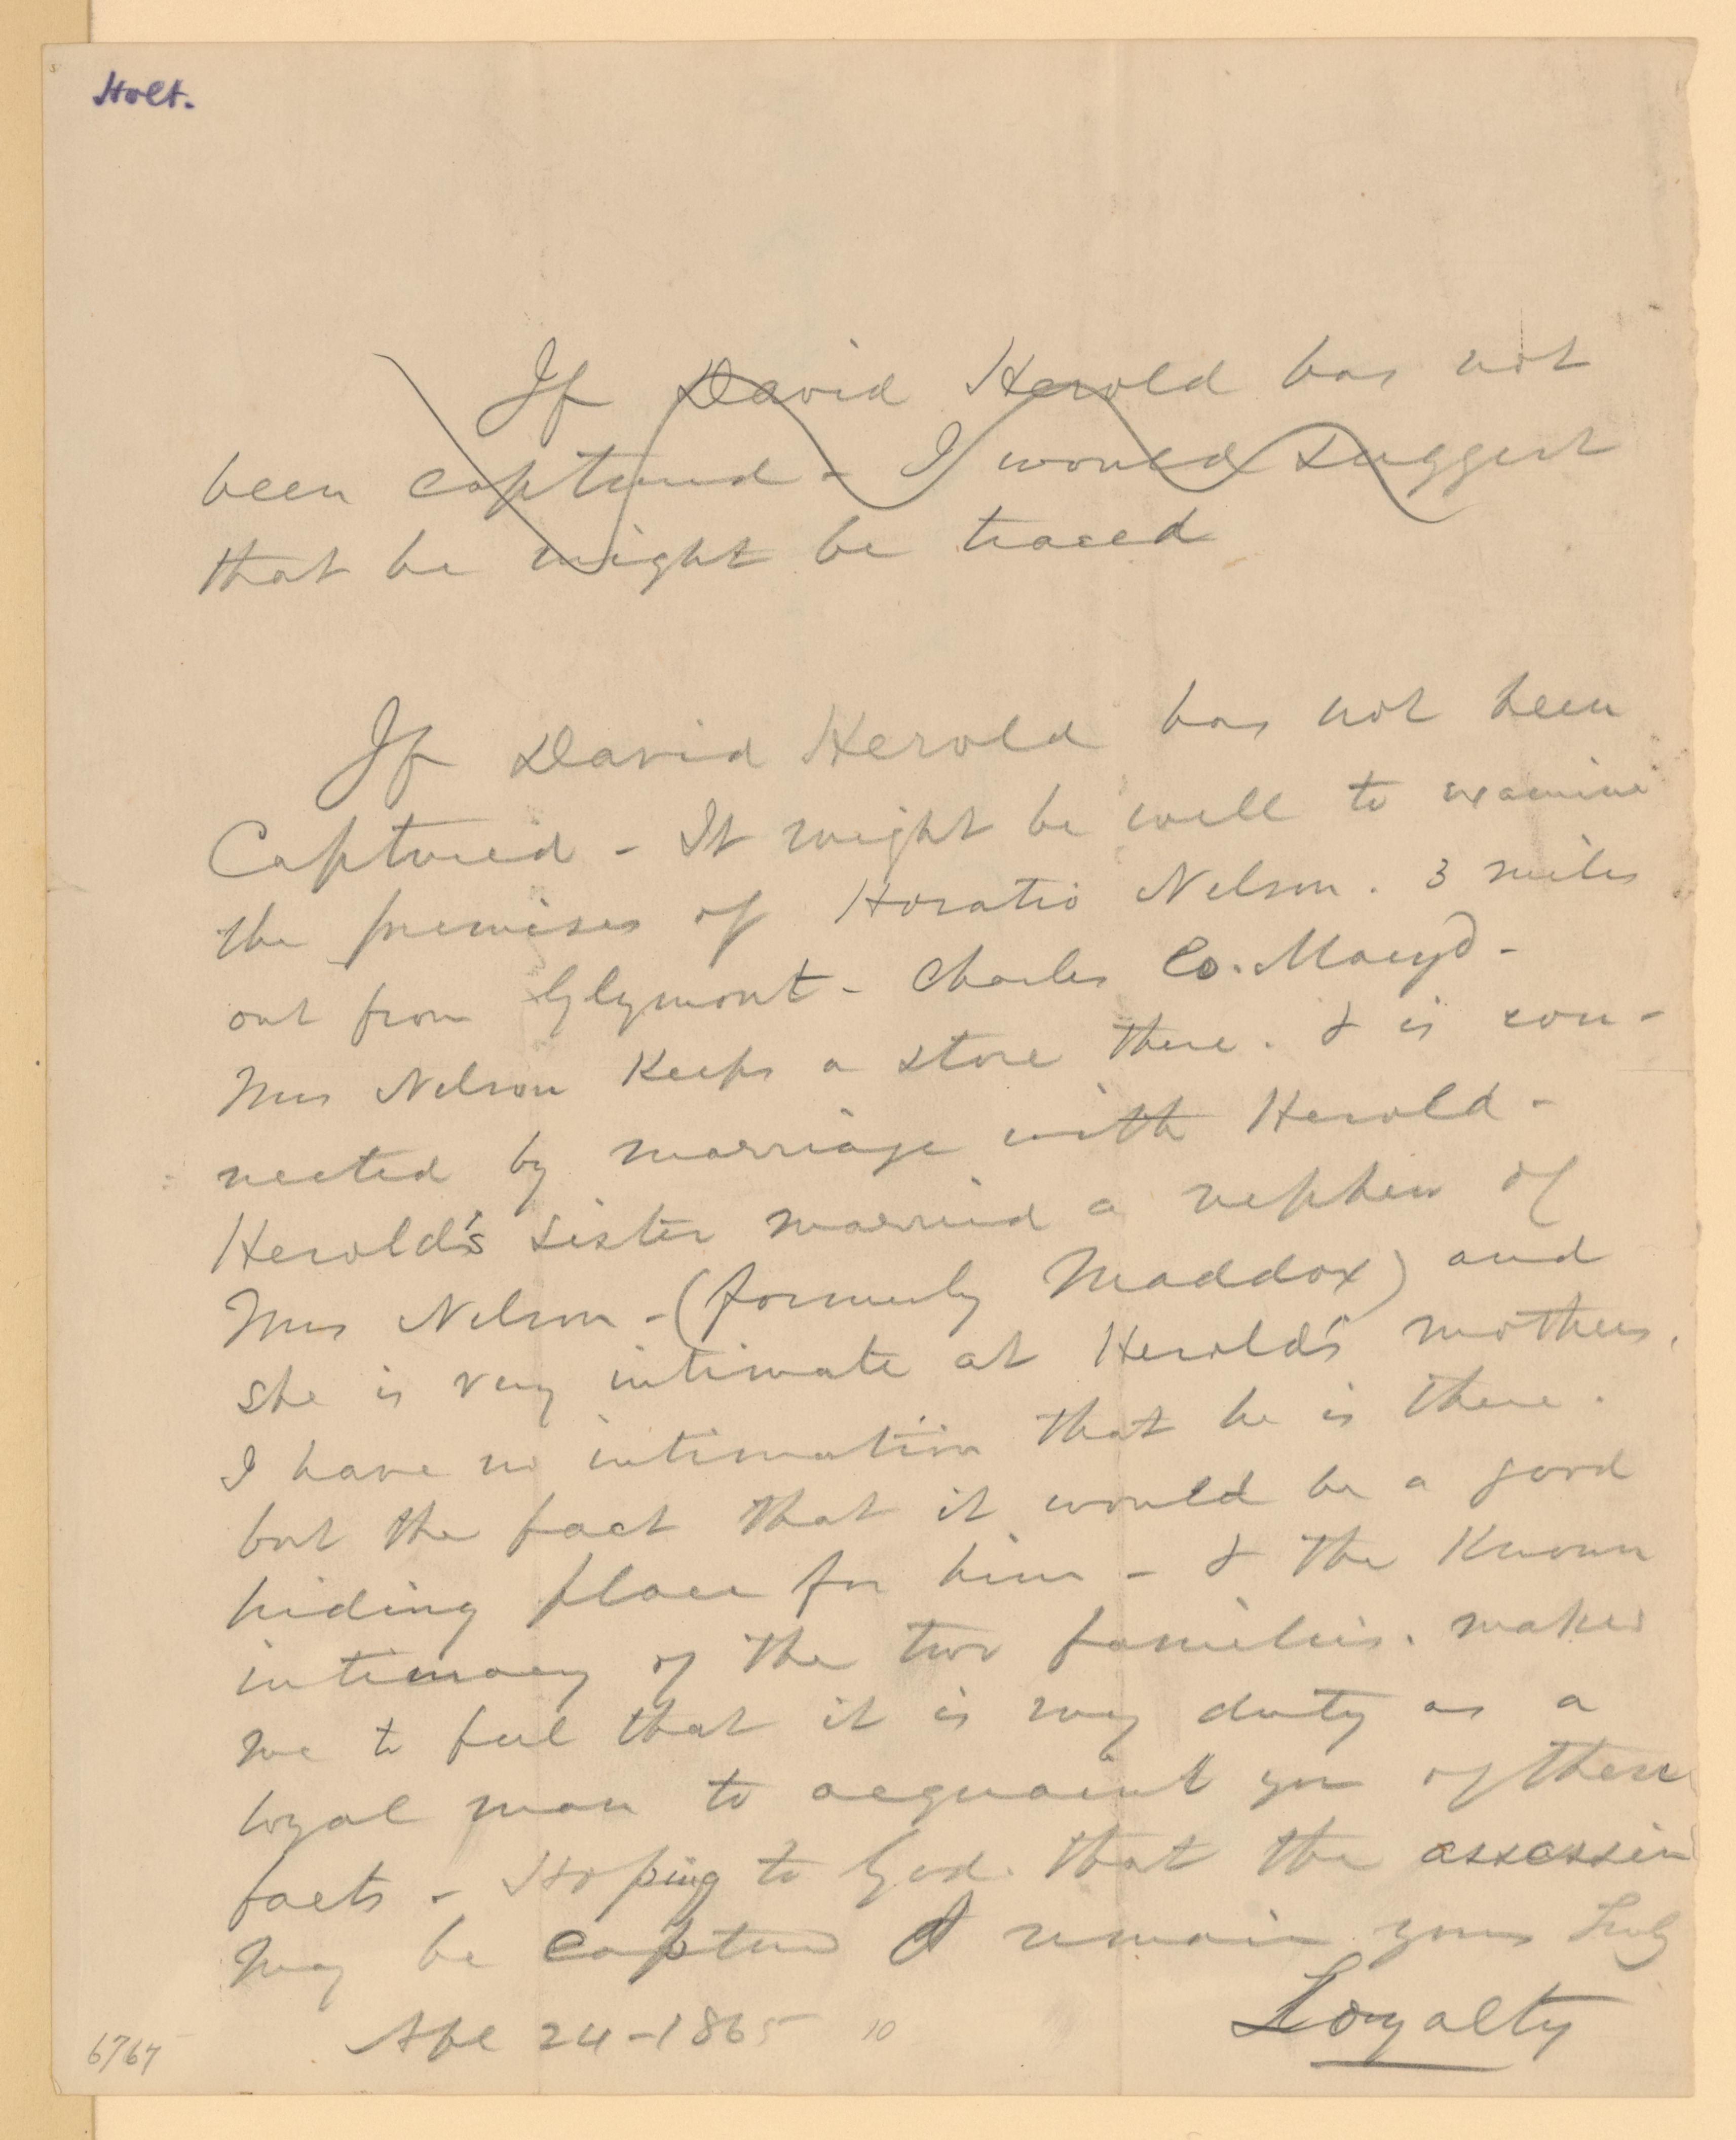 Holt.
If David Herold has not
been captured - I would suggest
that he might be traced
If David Herold has not been
Captured - It might be well to examine
the premises of Horatio Nelson. 3 miles
out from Glymont - Charles Co. Maryd -
Mrs Nelson Keeps a store there. & is con-
nected by marriage with Herold -
Herold's sister married a nephew of
Mrs Nelson - (formerly Maddox) and
she is very intimate at Herold's mothers.
I have no intimation that he is there.
but the fact that it would be a good
hiding place for him - & the Known
intimacy of the two families. makes
me to feel that it is my duty as a
loyal man to acquaint you of these
facts - Hoping to God that the assassin
may be captured I remain yours truly
Loyalty
Apl 24 - 1865
10
6767